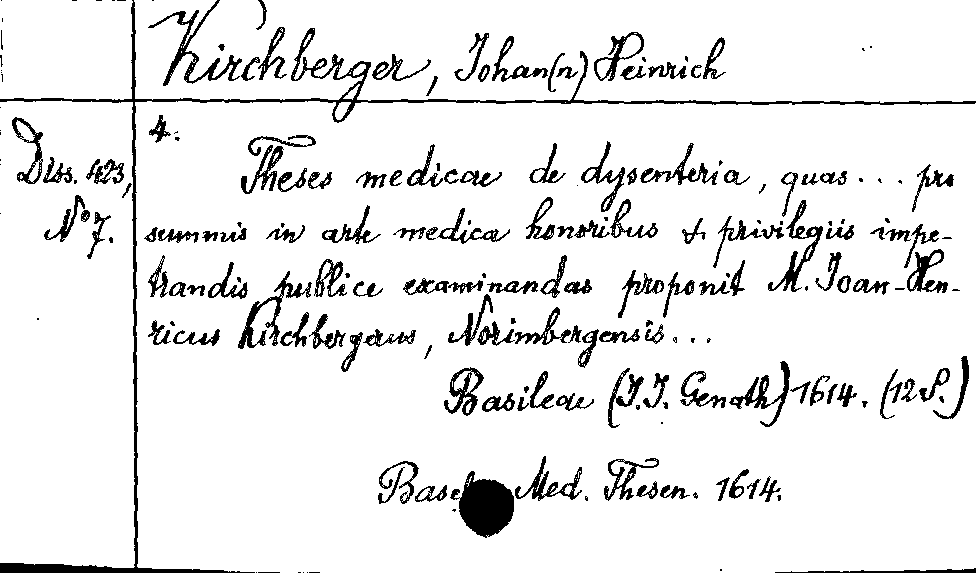 Kirchberger, Johan(n) Heinrich
Diss. 423,
N°7.
4.
Theses medicae de dysenteria, quas... pro
summis in arte medica honoribus & privilegiis impe-
trandis publice examinandas proponit M. Joan-Hen-
ricus Kirchbergerus, Norimbergensis...
Basileae (J.J. Genath) 1614. (12 S.)
Basel Med. Thesen. 1614.